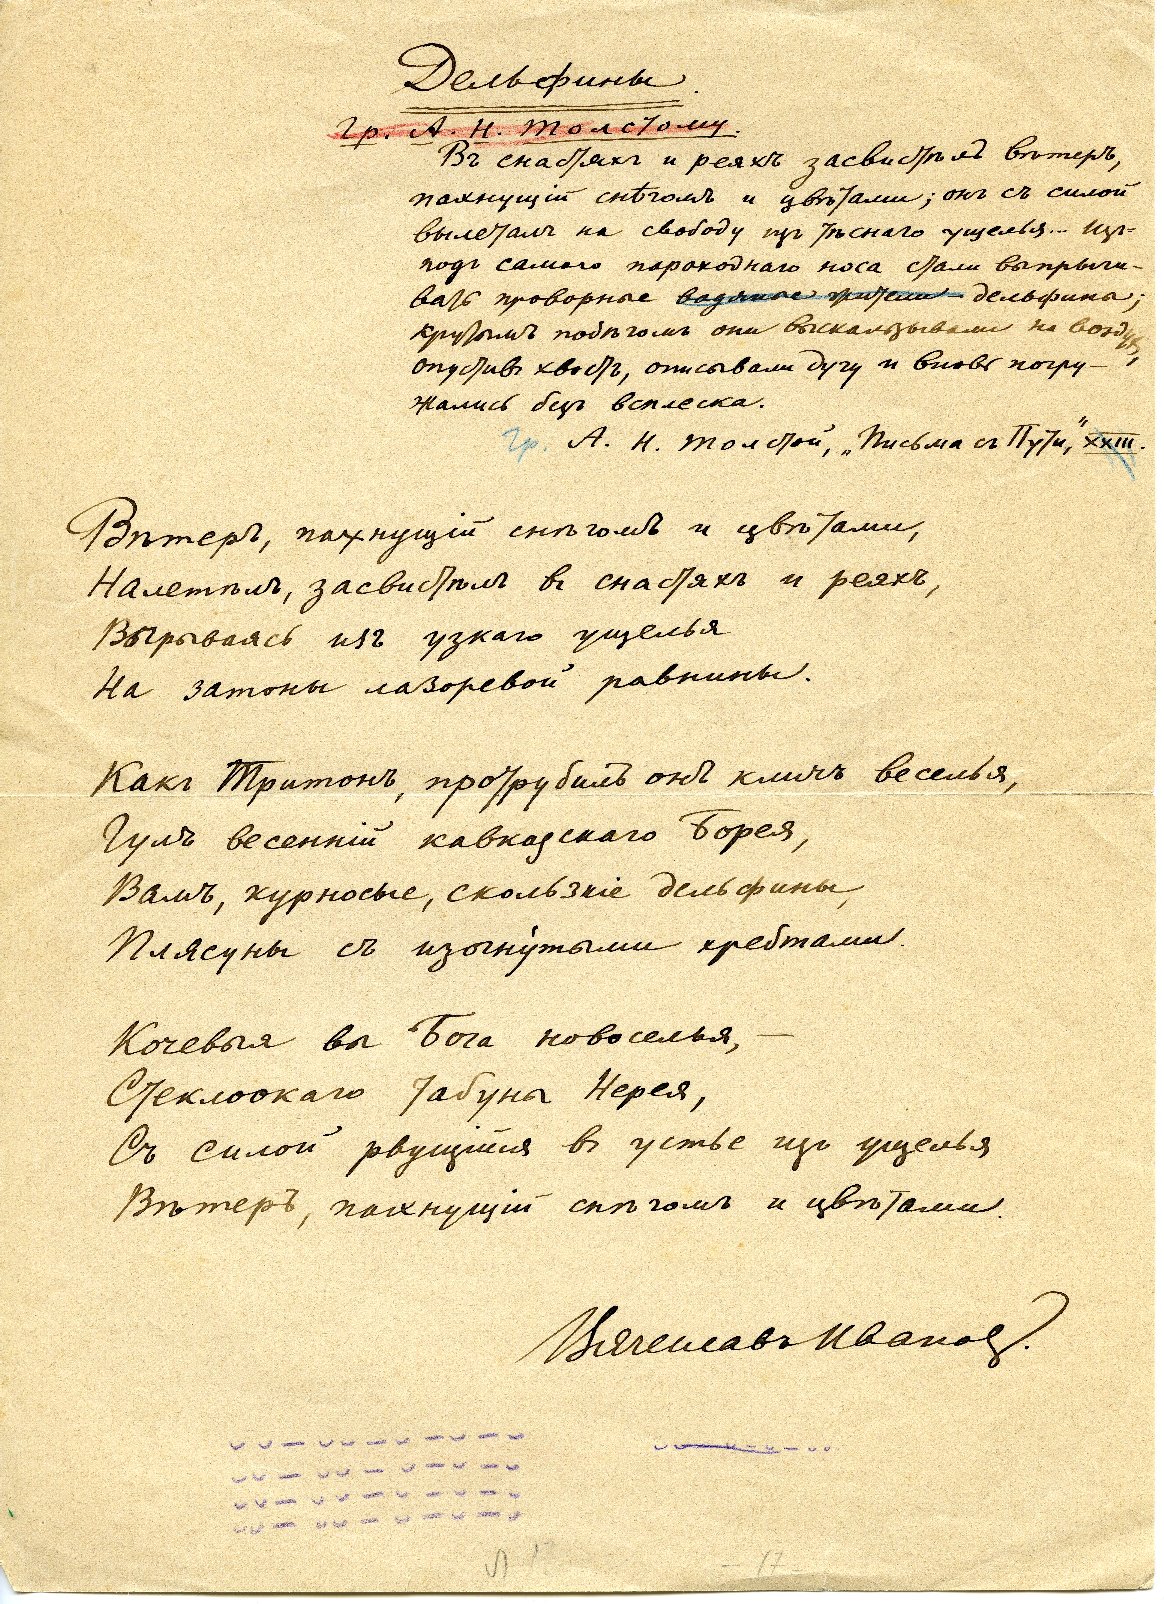 Дельфины.
Гр. А. Н. Толстому.
Въ снастяхъ и реяхъ засвистѣлъ вѣтеръ,
пахнущій снѣгомъ и цвѣтами; онъ съ силой
вылеталъ на свободу изъ тѣснаго ущелья... Изъ-
подъ самаго пароходнаго носа стали выпрыги-
вать проворные водяные жители дельфины;
крутымъ побѣгомъ они выскальзывали на воздухъ,
опустивъ хвостъ, описывали дугу и вновь погру-
жались безъ всплеска.
Гр. А. Н. Толстой, „Письма съ Пути," XXIII.
Вѣтеръ, пахнущій снѣгомъ и цвѣтами,
Налетѣлъ, засвистѣлъ въ снастяхъ и реяхъ,
Вырываясь изъ узкаго ущелья
На затоны лазоревой равнины.
Какъ Тритонъ, протрубилъ онъ кличъ веселья,
Гулъ весенній кавказскаго Борея,
Вамъ, курносые, скользкіе дельфины,
Плясуны съ изогнутыми хребтами.
Кочевья вы Бога новоселья, —
Стеклоокаго табуны Нерея,
Съ силой рвущійся въ устье изъ ущелья
Вѣтеръ, пахнущій снѣгомъ и цвѣтами.
Вячеславъ Ивановъ.
17